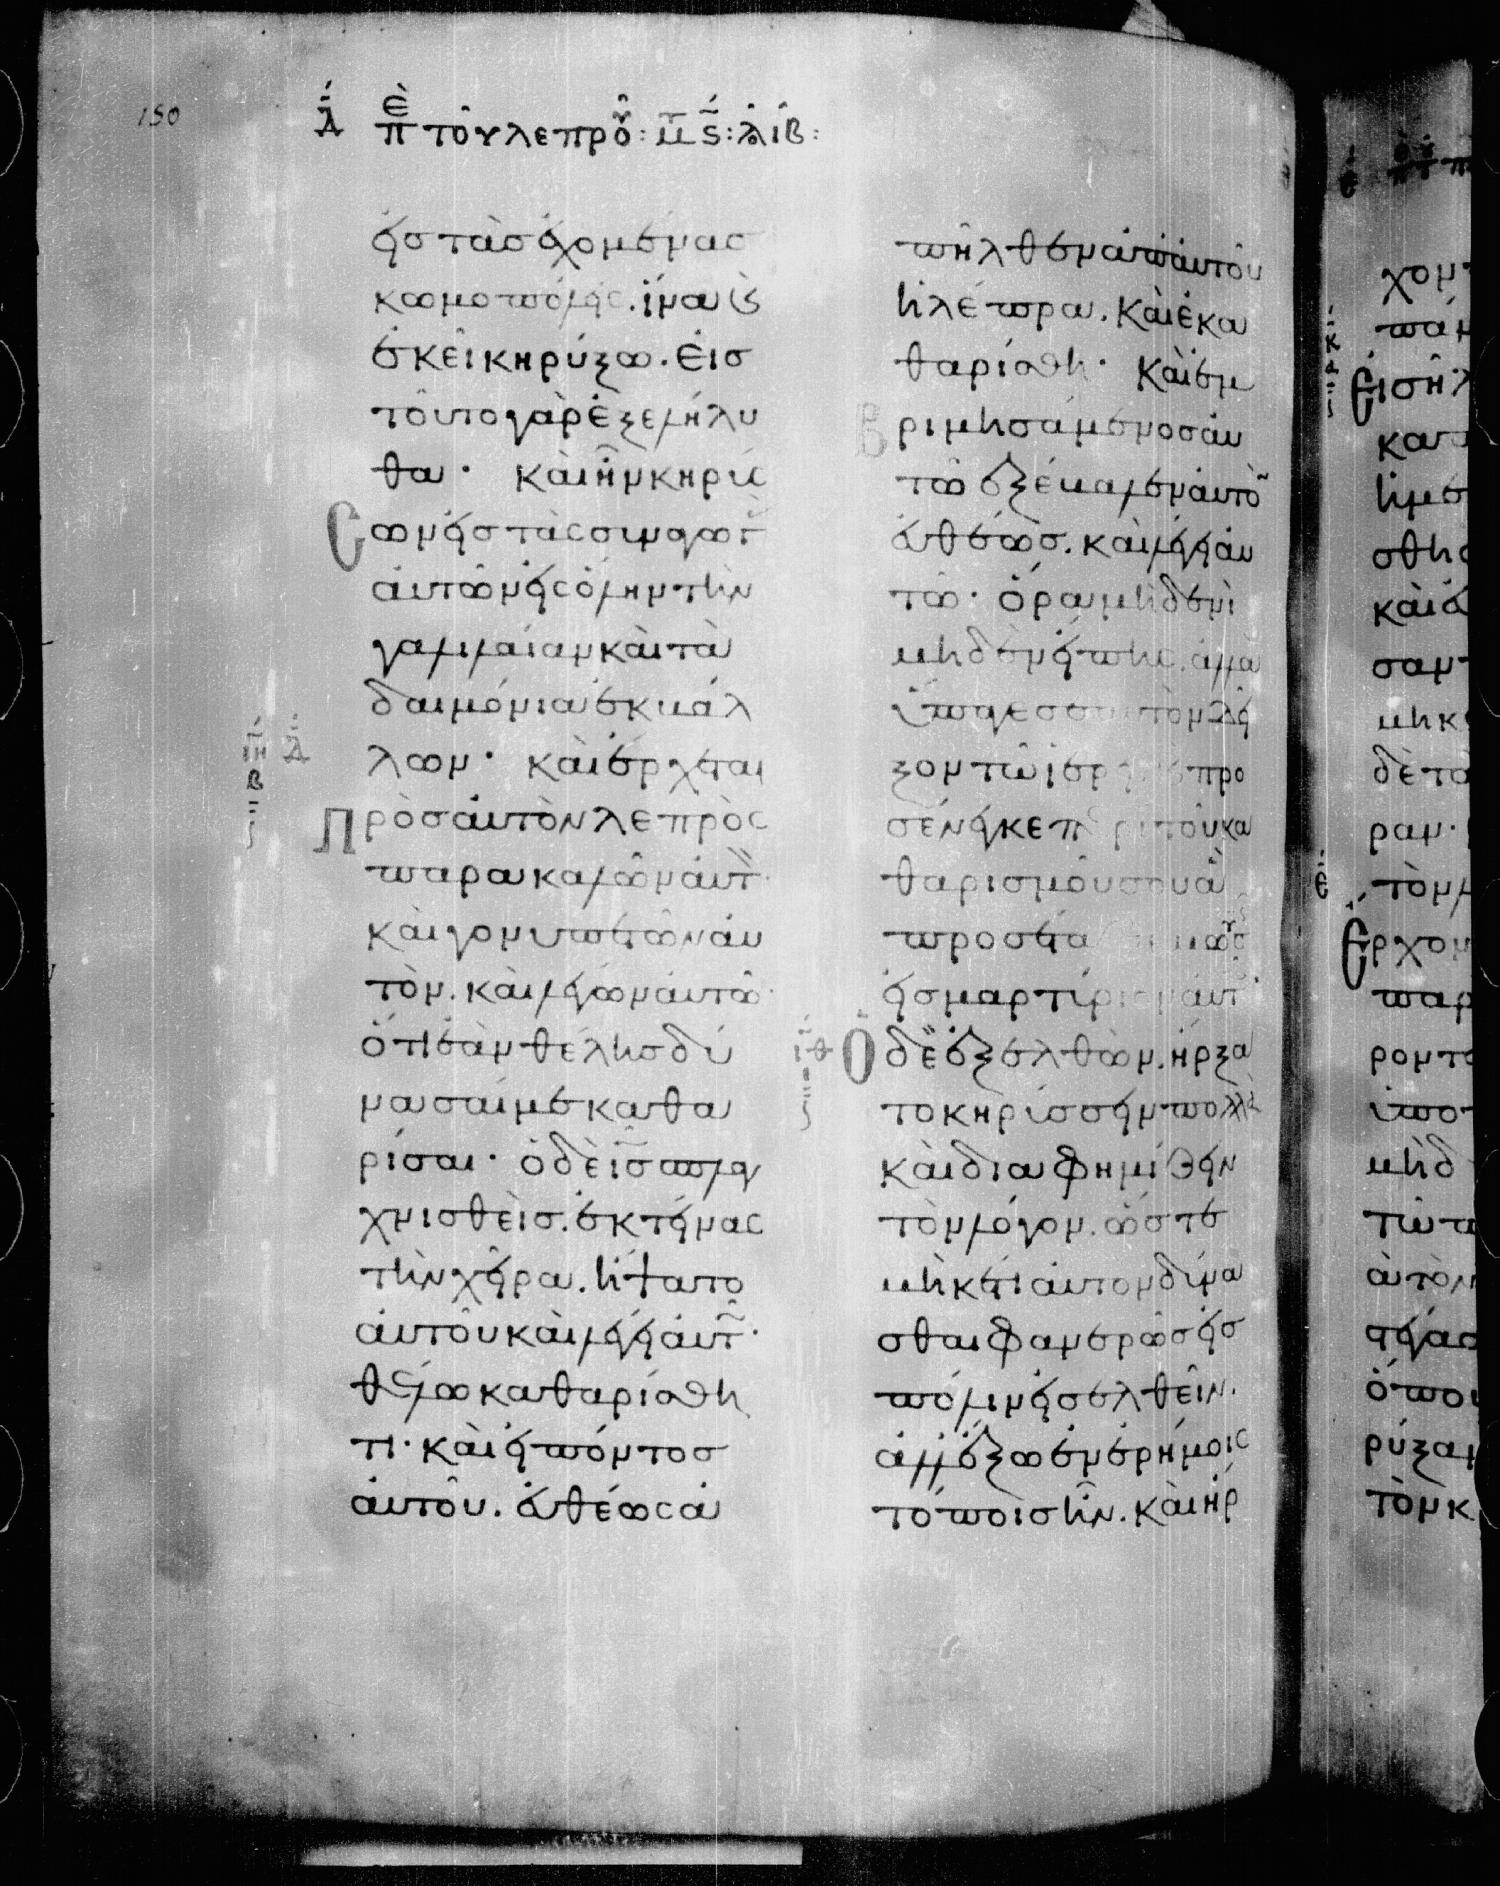 150
Δ ΠΕ τοῦ λεπροῦ: Μ ς: Λ ιβ:
εἰς τὰσ ἐχομένας
κωμοπόλεις. ἵνα κ
ἐκεῖ κηρύξω. εἰσ
τοῦτο γὰρ ἐξελήλυ
θα· καὶ ἦν κηρύς
σων εἰς τὰς συναγωγ
αὐτῶν εἰς ὅλην τὴν
γαλιλαίαν καὶ τὰ
δαιμόνια ἐκβάλ
λων· καὶ ἔρχεται
ιη Δ
β
πρὸσ αὐτὸν λεπρὸς
παρακαλῶν αὐτ
καὶ γονυπετῶν αὐ
τὸν. καὶ λέγων αὐτῶ·
ὅτι ἐὰν θέλησ δύ
νασαί με καθα
ρίσαι· ὁ δὲ ισ σπλαγ
χνισθεὶσ. ἐκτείνας
τὴν χεῖρα. ἥψατο
αὐτοῦ καὶ λέγει αὐτ·
θέλω καθαρίσθη
τι· καὶ εἰπόντοσ
αὐτοῦ. εὐθέως ἀ
πῆλθεν ἀπ αὐτοῦ
ἡ λέπρα. καὶ ἐκα
θαρίσθη· καὶ ἐμ
βριμησάμενοσ αὐ
τῶ ἐξέβαλεν αὐτὸ
εὐθέωσ. καὶ λέγει αὐ
τῶ· ὅρα μηδενὶ
μηδὲν εἴπης. ἀλλὰ
ὕπαγε σεαυτὸν δεῖ
ξον τῶ ἱερεῖ προ
σένεγκε περὶ τοῦ κα
θαρισμοῦ σου ἃ
προσέτα μωσ
εἰσ μαρτύριον αὐτ
ιθ ὁ δὲ ἐξελθὼν. ἤρξα
το κηρύσσειν πολλὰ
καὶ διαφημίζειν
τὸν λόγον. ὥστε
μηκέτι αὐτον δύνα
σθαι φανερῶσ εἰσ
πόλιν εἰσελθεῖν.
ἀλλ ἔξω ἐν ἐρήμοις
τόποισ ἦν. καὶ ἤρ